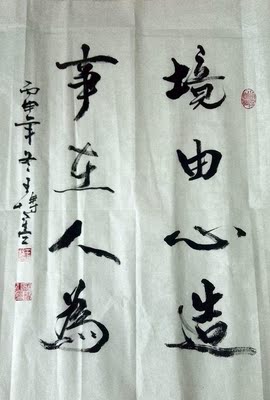 境由心造
事在人為
丙申年冬